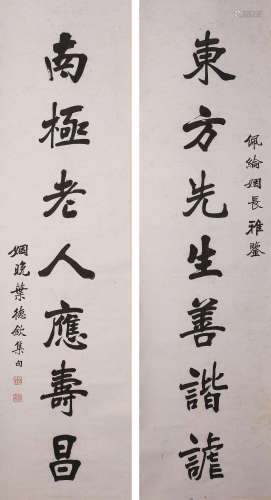 東方先生善諧謔
佩綸姻長雅鑒
南極老人應壽昌
姻晚葉德欽集句